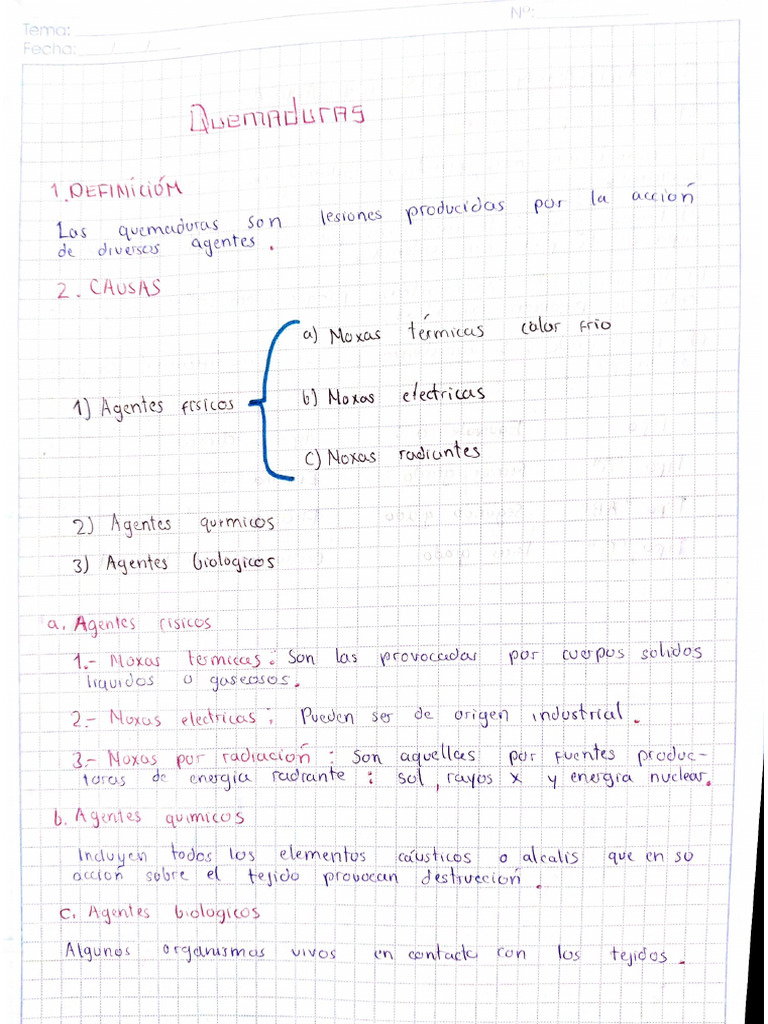 Nº:
Tema:
Fecha: / /
QUEMADURAS
1. DEFINICIÓN
Las quemaduras son lesiones producidas por la acción
de diversos agentes.
2. CAUSAS
a) Noxas térmicas calor frio
1) Agentes físicos
b) Noxas electricas
c) Noxas radiantes
2) Agentes químicos
3) Agentes biologicos
a. Agentes físicos
1.- Noxas termicas: Son las provocadas por cuerpos solidos
líquidos o gaseosos.
2.- Noxas electricas: Pueden ser de origen industrial.
3.- Noxas por radiación: Son aquellas por fuentes produc-
toras de energía radiante: sol, rayos x y energia nuclear.
b. Agentes quimicos
Incluyen todos los elementos cáusticos o alcalis que en su
acción sobre el tejido provocan destrucción.
c. Agentes biologicos
Algunos organismos vivos en contacto con los tejidos.